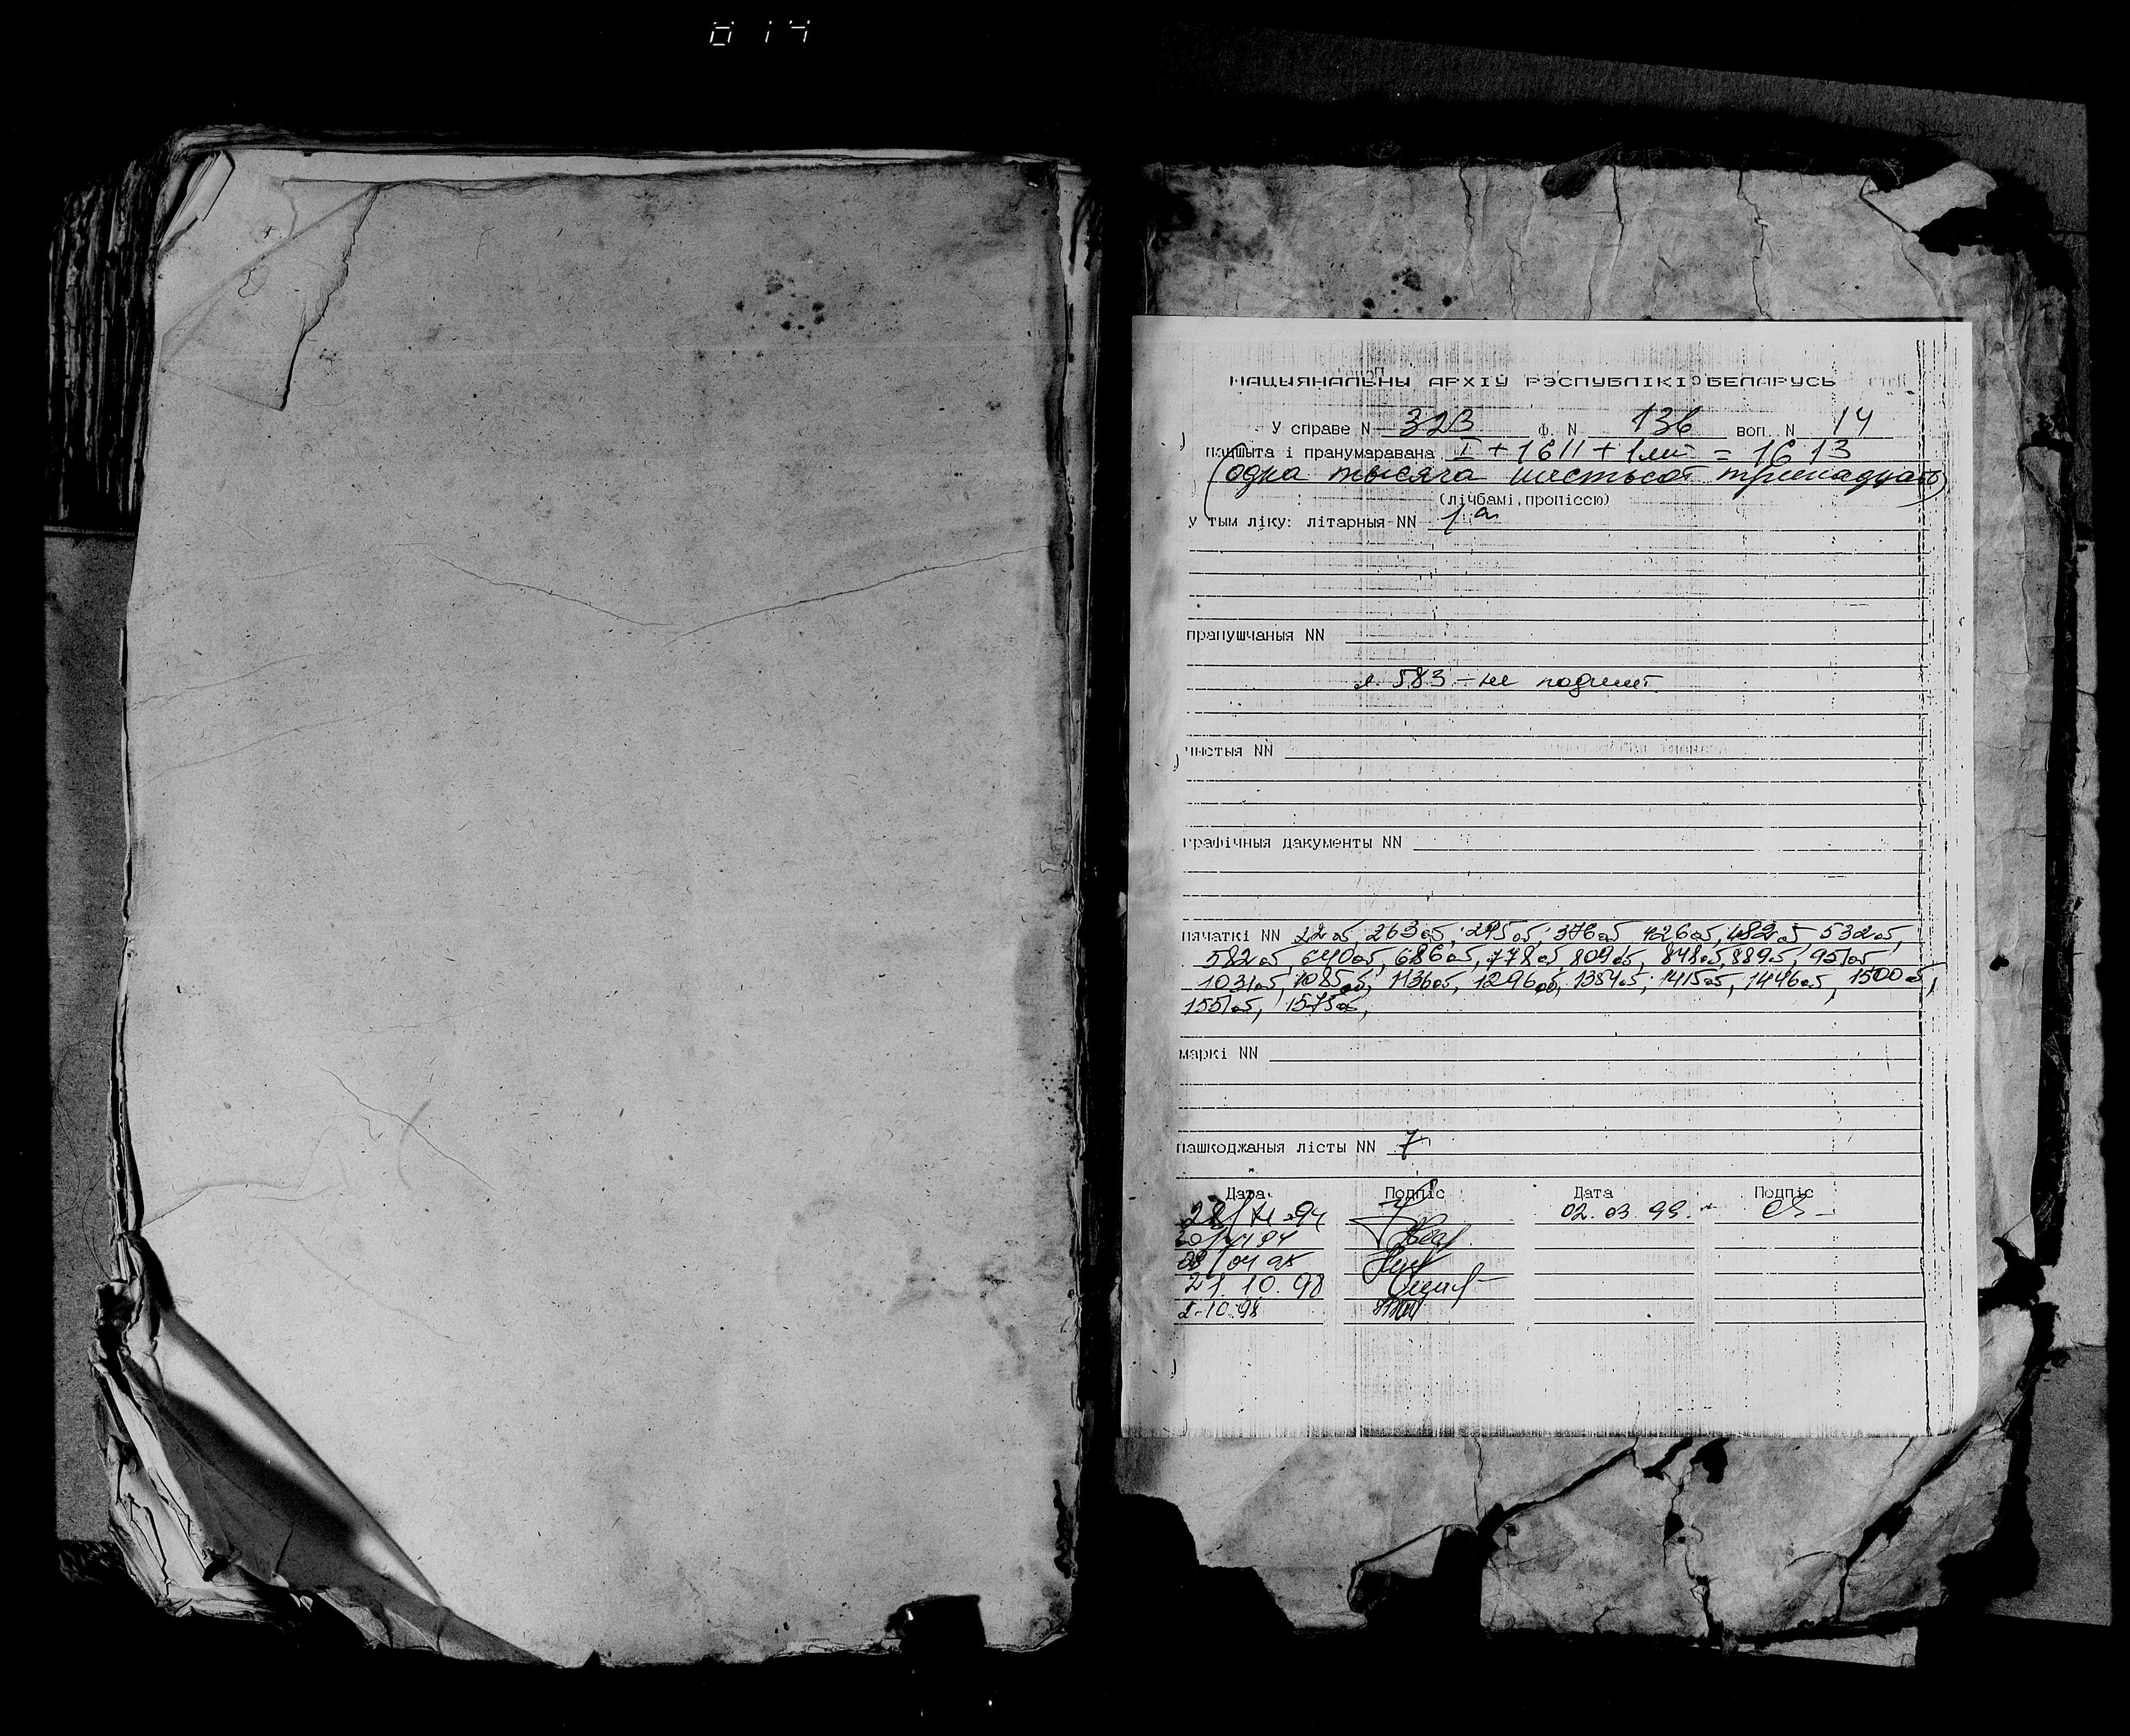 014
НАЦЫЯНАЛЬНЫ АРХІЎ РЭСПУБЛІКІ БЕЛАРУСЬ
У справе N 323 Ф. N 136 воп. N 14
пашыта і пранумаравана I + 1611 + 1 = 1613
(одна тысяча шестьсот тринадцать)
(лічбамі, пропіссю)
у тым ліку: літарныя NN 1а
прапушчаныя NN
л. 583 – не подшит
чыстыя NN
графічныя дакументы NN
пячаткі NN 22об, 263об, 295об, 376об, 426об, 482об, 532об,
582об, 640об, 686об, 778об, 809об, 848об, 889об, 951об
1031об, 1085об, 1136об, 1296об, 1354об, 1415об, 1446об, 1500об,
1551об, 1575об,
маркі NN
пашкоджаныя лісты NN 7
Дата Подпіс Дата Подпіс
02.03.99.
21.10.98